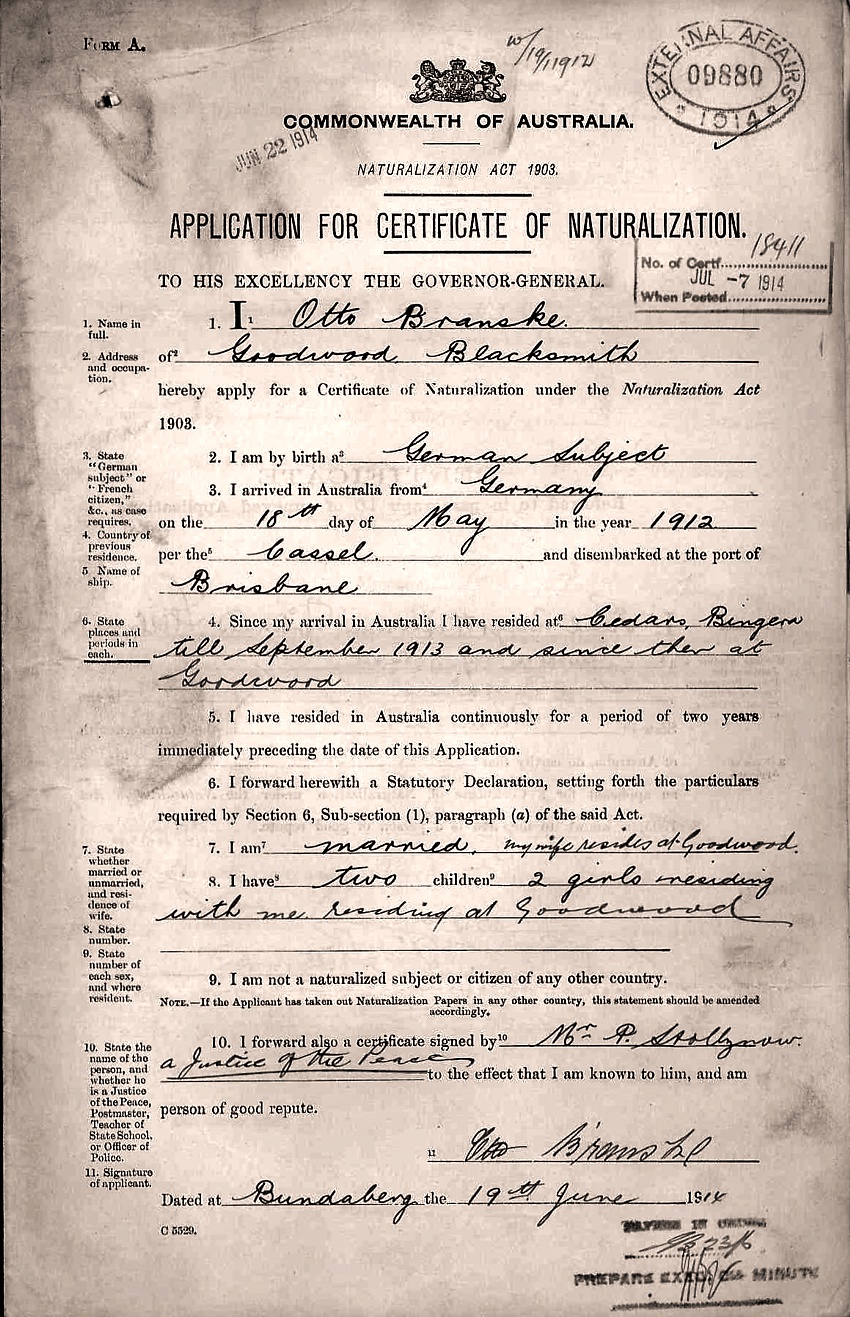 FORM A.
EXTERNAL AFFAIRS
09880
1914
COMMONWEALTH OF AUSTRALIA.
JUN 22 1914
NATURALIZATION ACT 1903.
APPLICATION FOR CERTIFICATE OF NATURALIZATION.
No. of Certf. 18411
JUL -7 1914
When Posted
TO HIS EXCELLENCY THE GOVERNOR-GENERAL.
1. Name in full.
1. I,¹ Otto Branske.
2. Address and occupation.
of² Goodwood, Blacksmith
hereby apply for a Certificate of Naturalization under the Naturalization Act
1903.
3. State "German subject" or "French citizen," &c., as case requires.
2. I am by birth a³ German Subject
3. I arrived in Australia from⁴ Germany
on the 18th day of May in the year 1912
4. Country of previous residence.
per the⁵ Cassel. and disembarked at the port of
5. Name of ship.
Brisbane
6. State places and periods in each.
4. Since my arrival in Australia I have resided at⁶ Cedars, Bingera
till September 1913 and since then at
Goodwood
5. I have resided in Australia continuously for a period of two years
immediately preceding the date of this Application.
6. I forward herewith a Statutory Declaration, setting forth the particulars
required by Section 6, Sub-section (1), paragraph (a) of the said Act.
7. State whether married or unmarried, and residence of wife.
7. I am⁷ married, my wife resides at Goodwood.
8. I have⁸ two children⁹ 2 girls residing
with me residing at Goodwood
8. State number.
9. State number of each sex, and where resident.
9. I am not a naturalized subject or citizen of any other country.
NOTE.—If the Applicant has taken out Naturalization Papers in any other country, this statement should be amended
accordingly.
10. State the name of the person, and whether he is a Justice of the Peace, Postmaster, Teacher of State School, or Officer of Police.
10. I forward also a certificate signed by¹⁰ Mr P. Stollznow.
a Justice of the Peace
to the effect that I am known to him, and am
person of good repute.
11 Otto Branske
11. Signature of applicant.
Dated at Bundaberg the 19th June 1914
C 5529.
PAPERS IN ORDER
23/6
PREPARE EXEC. MINUTE